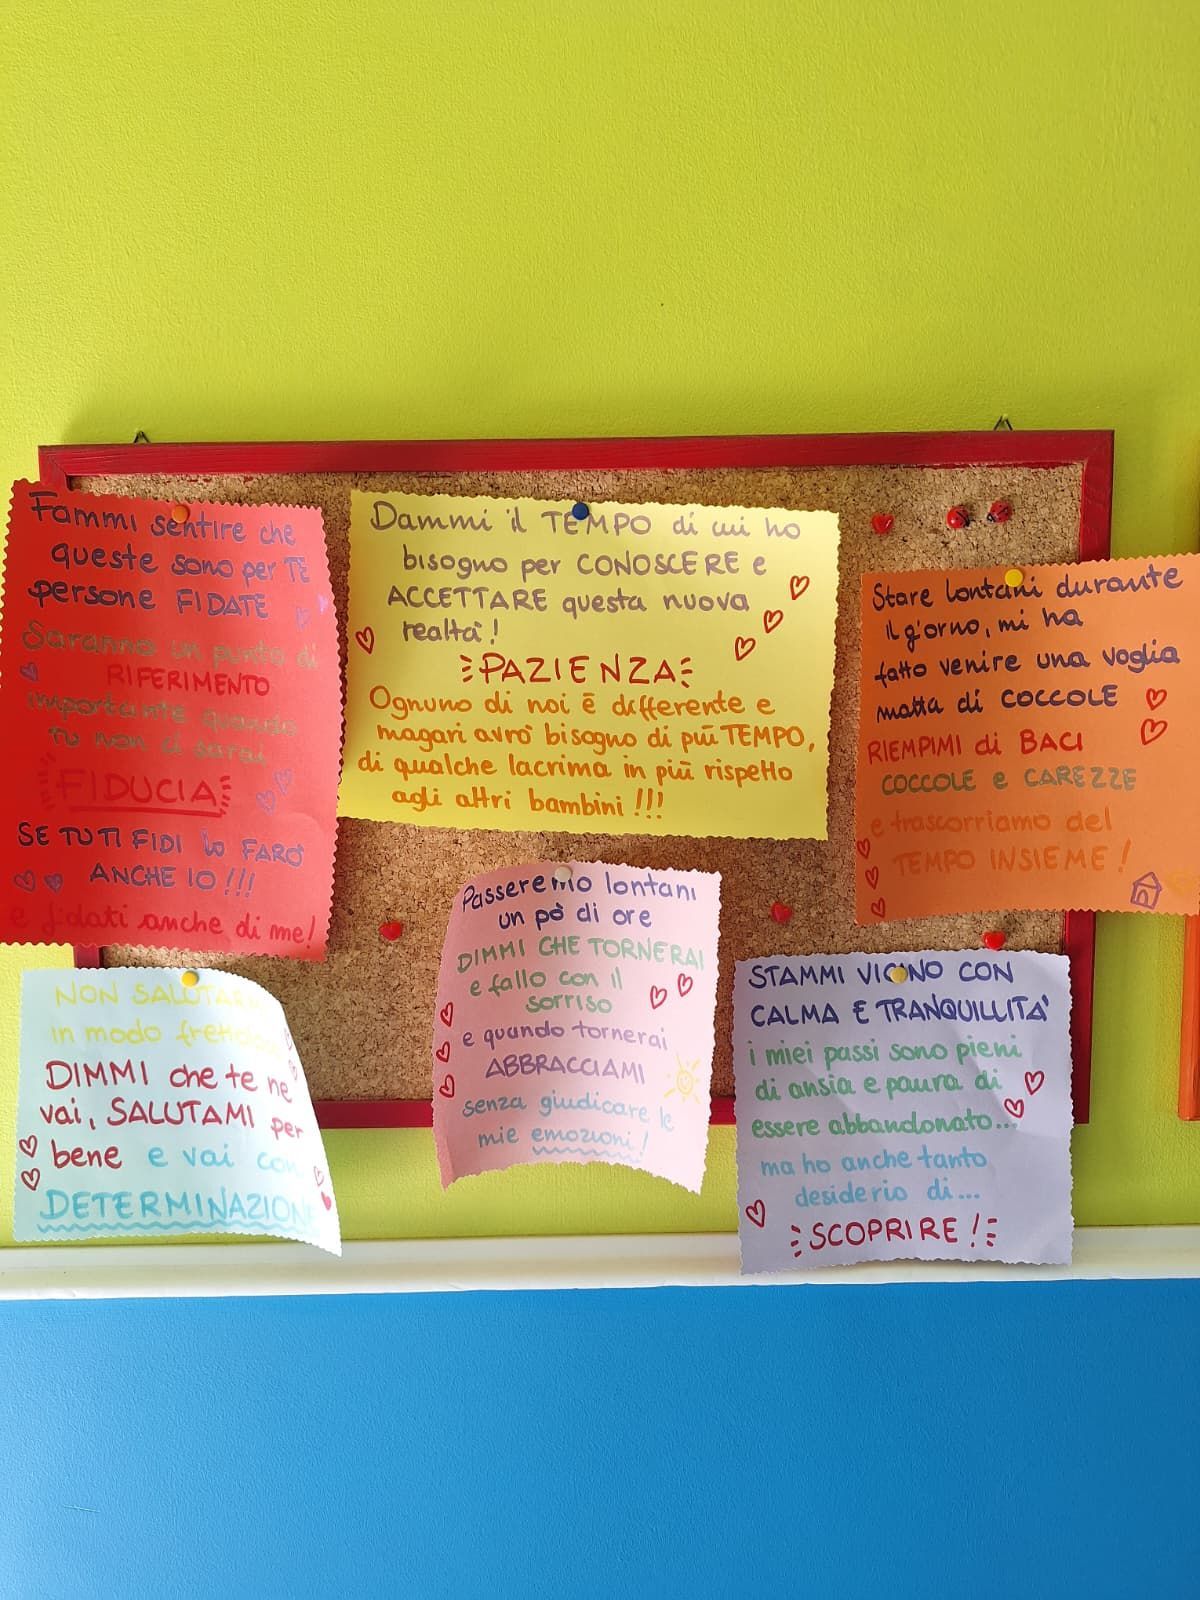 Fammi sentire che
queste sono per TE
persone FIDATE
Saranno un punto di
RIFERIMENTO
importante quando
tu non ci sarai
FIDUCIA
SE TU TI FIDI io FARÒ
ANCHE IO!!!
e fidati anche di me!
Dammi il TEMPO di cui ho
bisogno per CONOSCERE e
ACCETTARE questa nuova
realtà!
PAZIENZA
Ognuno di noi è differente e
magari avrò bisogno di più TEMPO,
di qualche lacrima in più rispetto
agli altri bambini!!!
Stare lontani durante
il giorno, mi ha
fatto venire una voglia
matta di COCCOLE
RIEMPIMI di BACI
COCCOLE e CAREZZE
e trascorriamo del
TEMPO INSIEME!
NON SALUTARMI
in modo frettoloso
DIMMI che te ne
vai, SALUTAMI per
bene e vai con
DETERMINAZIONE
Passeremo lontani
un pò di ore
DIMMI CHE TORNERAI
e fallo con il
sorriso
e quando tornerai
ABBRACCIAMI
senza giudicare le
mie emozioni!
STAMMI VICINO CON
CALMA E TRANQUILLITÀ
i miei passi sono pieni
di ansia e paura di
essere abbandonato...
ma ho anche tanto
desiderio di...
SCOPRIRE!